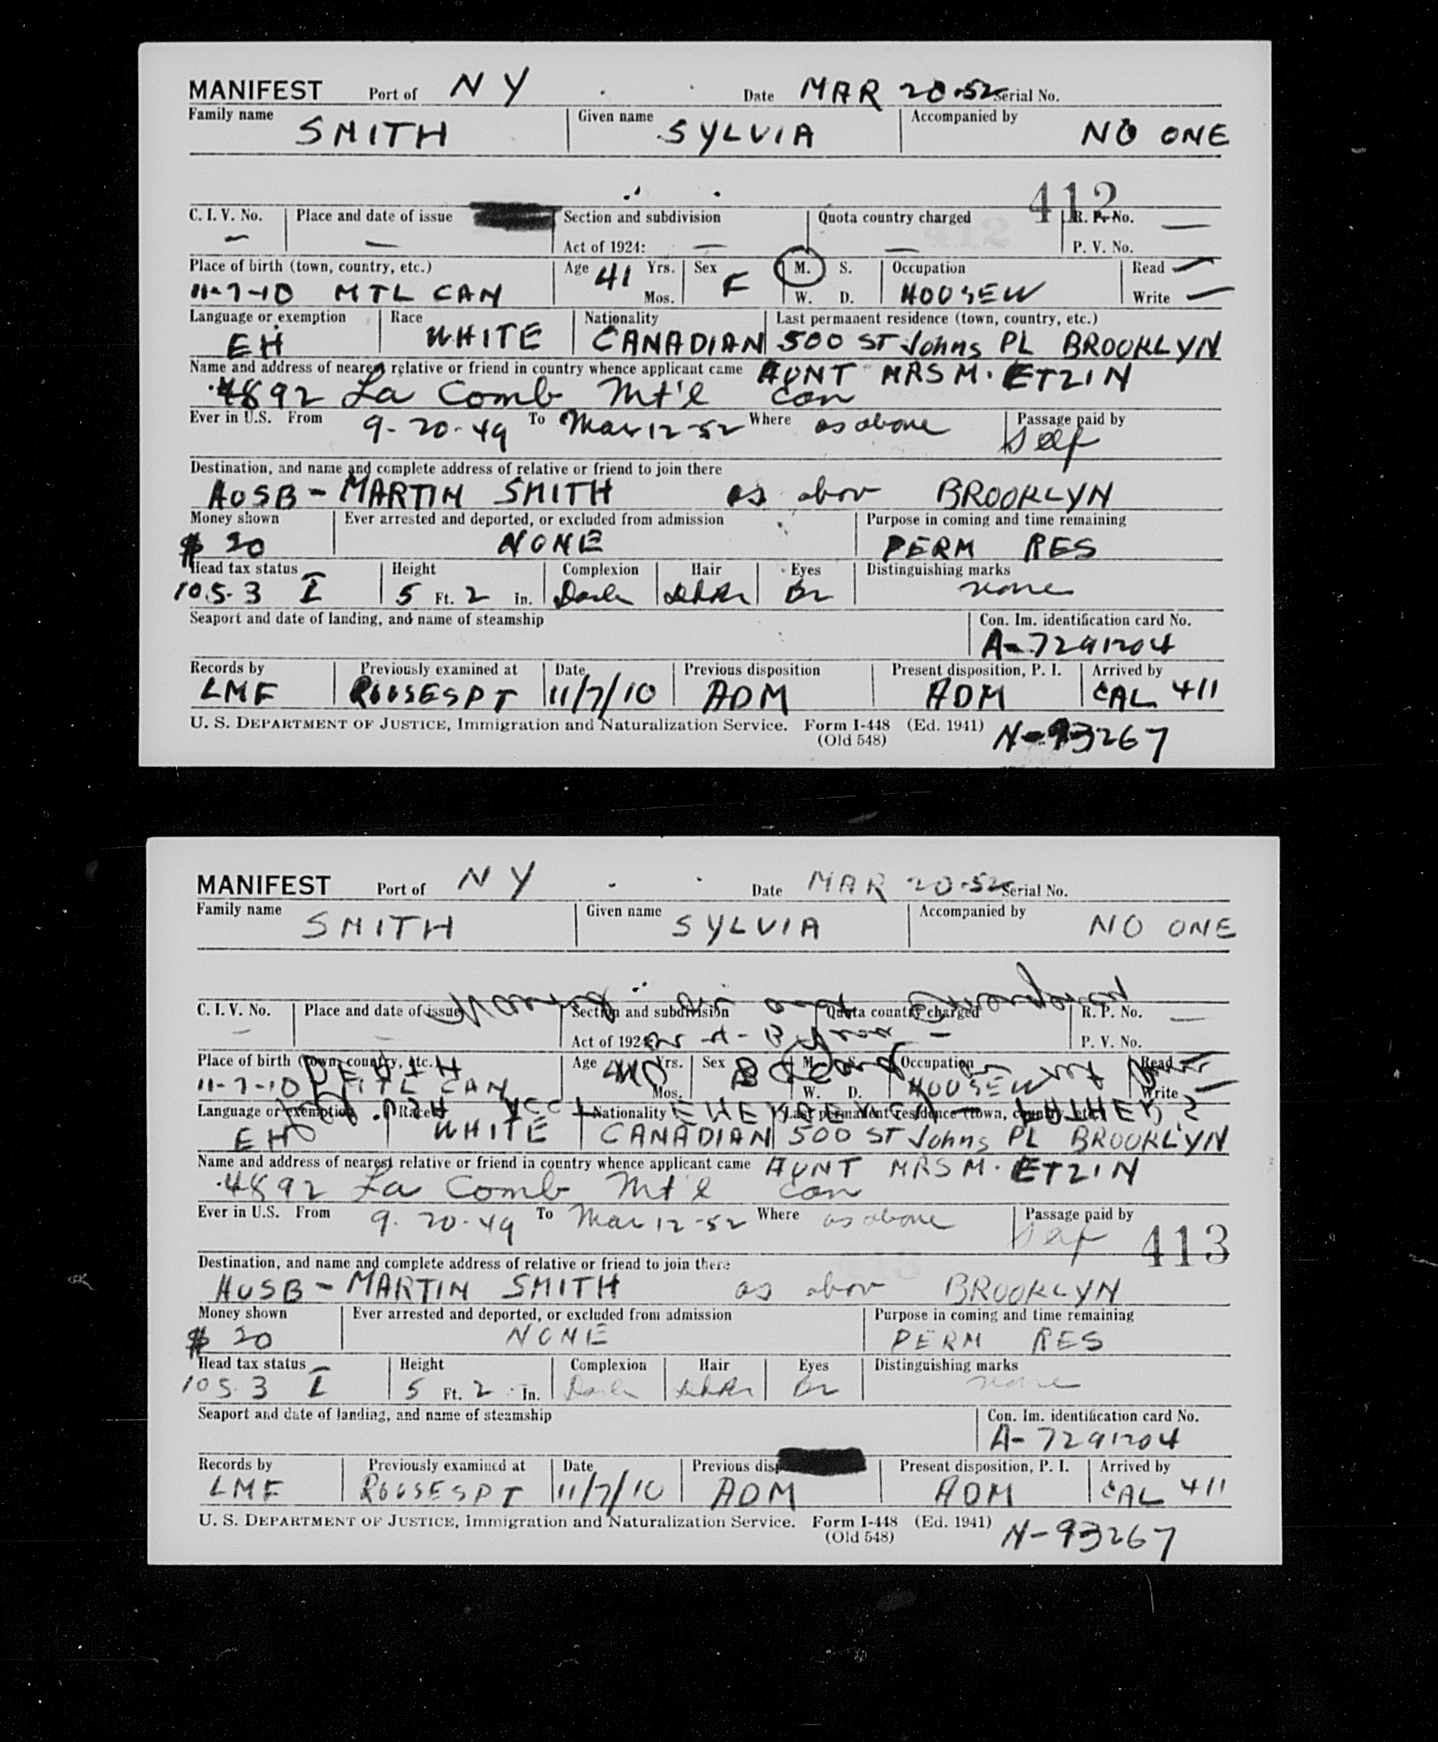 MANIFEST Port of N Y Date MAR 20-52 Serial No.
Family name SMITH Given name SYLVIA Accompanied by NO ONE
412
C. I. V. No. — Place and date of issue — Section and subdivision Quota country charged R. P. No. —
Act of 1924: — — P. V. No.
Place of birth (town, country, etc.) Age 41 Yrs. Sex F M. S. Occupation Read —
11-7-10 MTL CAN Mos. W. D. HOUSEW Write —
Language or exemption Race Nationality Last permanent residence (town, country, etc.)
EH WHITE CANADIAN 500 ST Johns PL BROOKLYN
Name and address of nearest relative or friend in country whence applicant came AUNT MRS M. ETZIN
4892 La Comb Mt'l Can
Ever in U.S. From 9-20-49 To Mar 12-52 Where as above Passage paid by Self
Destination, and name and complete address of relative or friend to join there
HUSB - MARTIN SMITH as abov BROOKLYN
Money shown Ever arrested and deported, or excluded from admission Purpose in coming and time remaining
$ 20 NONE PERM RES
Head tax status Height Complexion Hair Eyes Distinguishing marks
105.3 I 5 Ft. 2 in. Dark Br none
Seaport and date of landing, and name of steamship Con. Im. identification card No.
A-7291204
Records by Previously examined at Date Previous disposition Present disposition, P. I. Arrived by
LMF ROUSESPT 11/7/10 ADM ADM CAL 411
U. S. DEPARTMENT OF JUSTICE, Immigration and Naturalization Service. Form I-448 (Ed. 1941) N-93267
(Old 548)
MANIFEST Port of N Y Date MAR 20-52 Serial No.
Family name SMITH Given name SYLVIA Accompanied by NO ONE
C. I. V. No. — Place and date of issue Section and subdivision Quota country charged R. P. No. —
Act of 1924: — P. V. No.
Place of birth (town, country, etc.) Age Yrs. Sex M. S. Occupation Read —
11-7-10 MTL CAN Mos. W. D. HOUSEW Write —
Language or exemption Race Nationality Last permanent residence (town, country, etc.)
EH WHITE CANADIAN 500 ST Johns PL BROOKLYN
Name and address of nearest relative or friend in country whence applicant came AUNT MRS M. ETZIN
4892 La Comb Mt'l Can
Ever in U.S. From 9-20-49 To Mar 12-52 Where as above Passage paid by Self
413
Destination, and name and complete address of relative or friend to join there
HUSB - MARTIN SMITH as abov BROOKLYN
Money shown Ever arrested and deported, or excluded from admission Purpose in coming and time remaining
$ 20 NONE PERM RES
Head tax status Height Complexion Hair Eyes Distinguishing marks
105.3 I 5 Ft. 2 in. Dark Br none
Seaport and date of landing, and name of steamship Con. Im. identification card No.
A-7291204
Records by Previously examined at Date Previous Present disposition, P. I. Arrived by
LMF ROUSESPT 11/7/10 ADM ADM CAL 411
U. S. DEPARTMENT OF JUSTICE, Immigration and Naturalization Service. Form I-448 (Ed. 1941) N-93267
(Old 548)